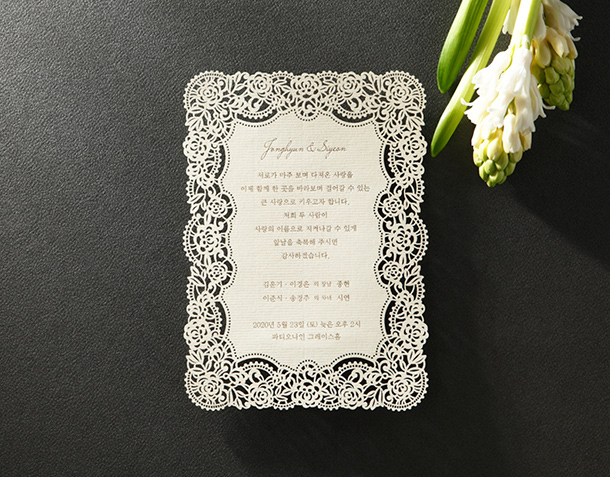 Jonghyun & Siyeon
서로가 마주 보며 다져온 사랑을
이제 함께 한 곳을 바라보며 걸어갈 수 있는
큰 사랑으로 키우고자 합니다.
저희 두 사람이
사랑의 이름으로 지켜나갈 수 있게
앞날을 축복해 주시면
감사하겠습니다.
김운기 · 이경은 의 장남 종현
이준서 · 송정주 의 차녀 시연
2020년 5월 23일 (토) 늦은 오후 2시
파티오나인 그레이스홀